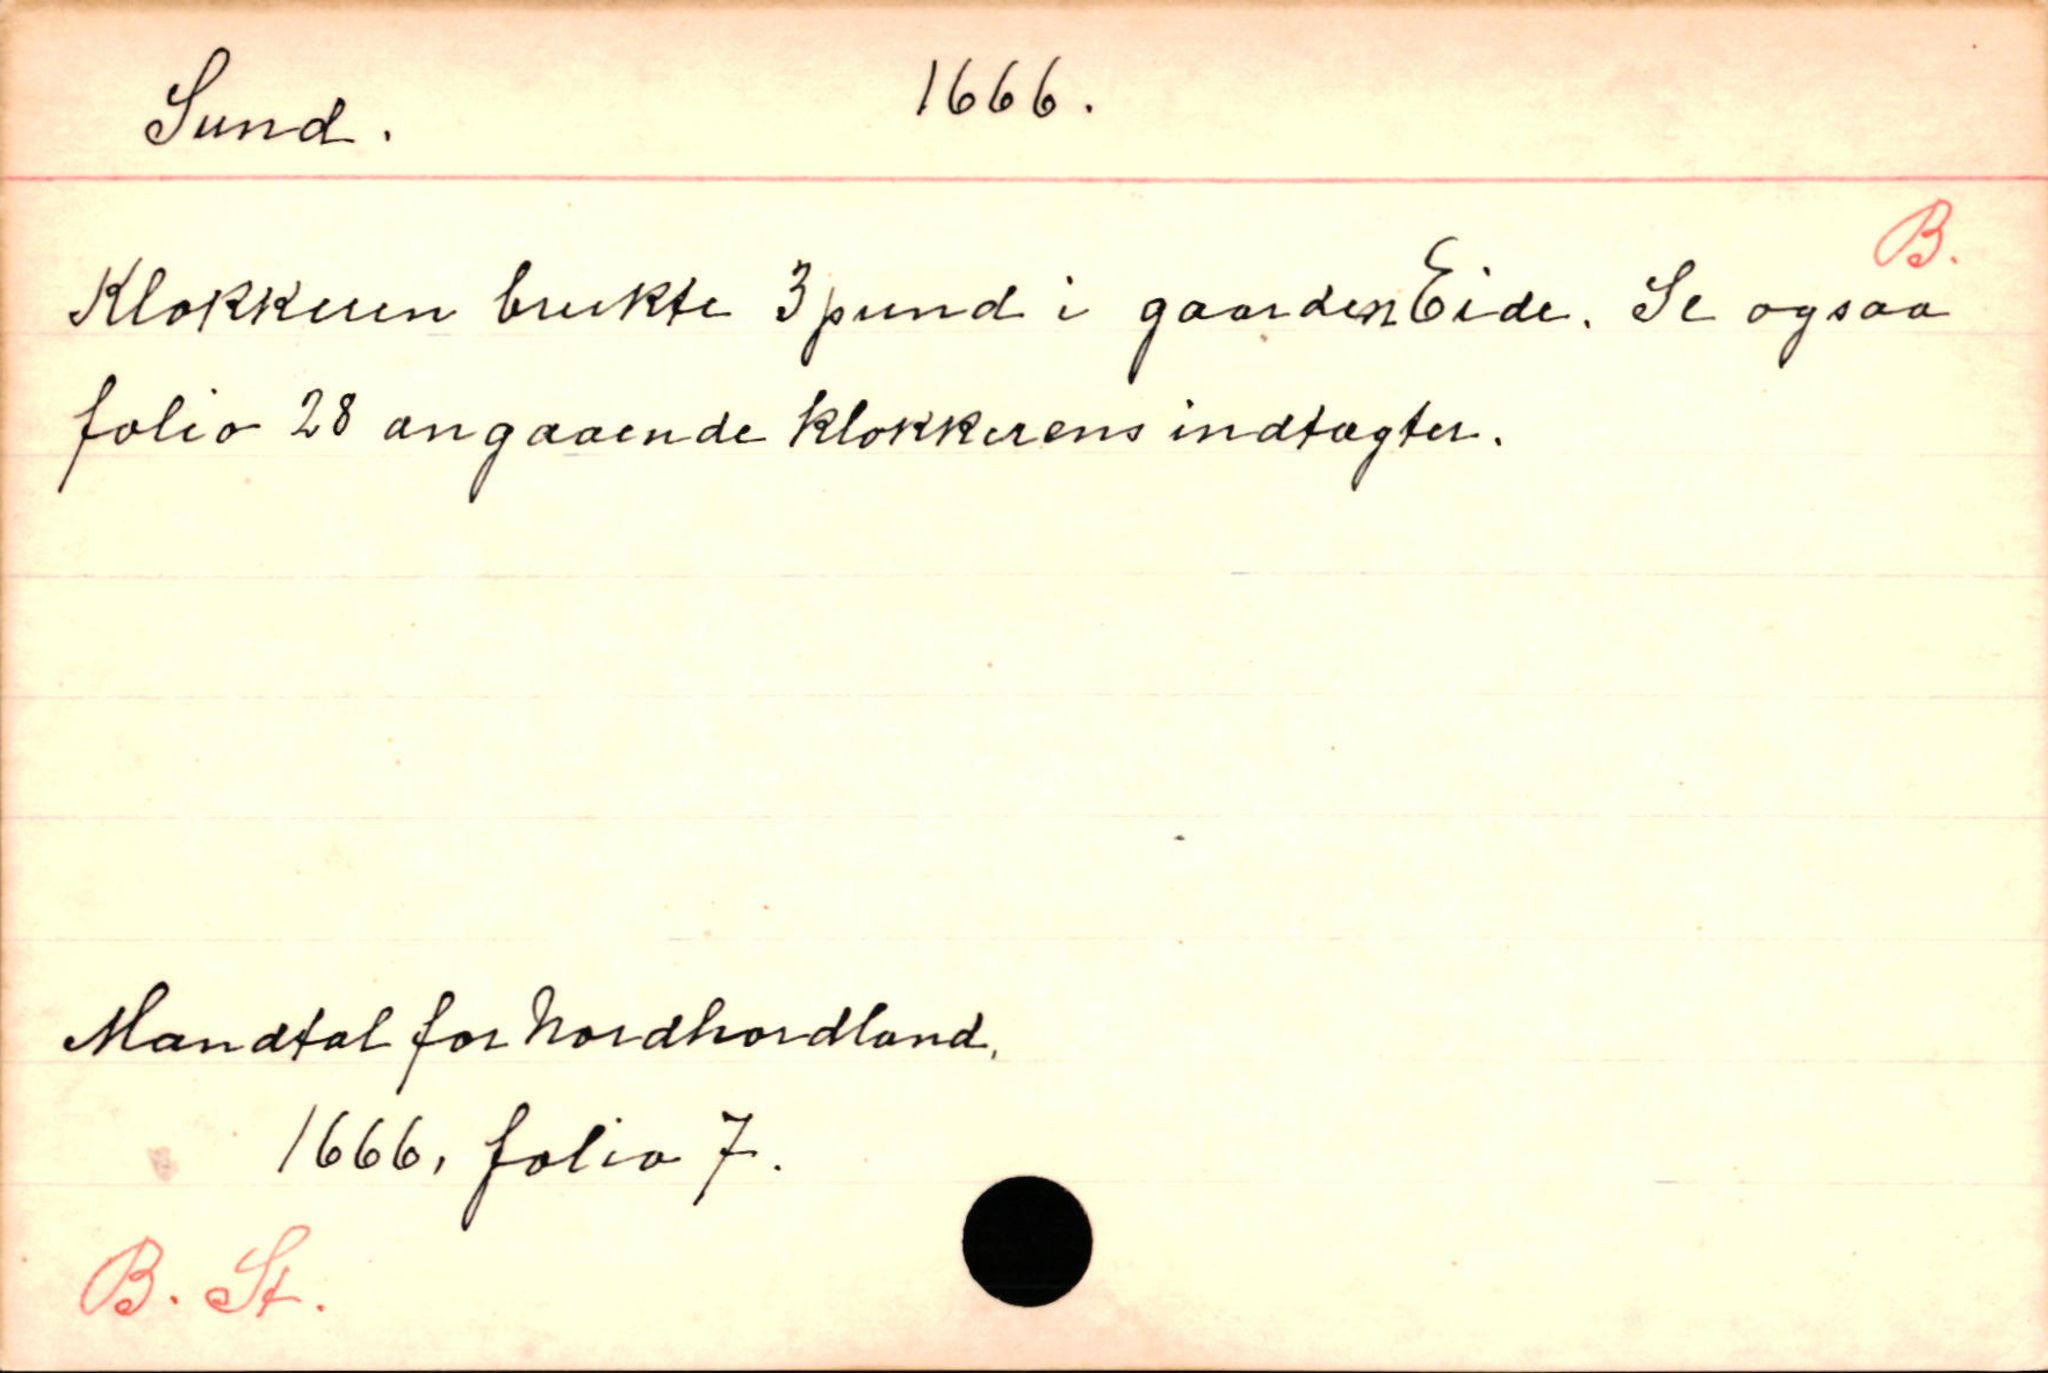 Sund. 1666.
B.
Klokkeren brukte 3 pund i gaarden Eide. Se ogsaa
folio 28 angaaende klokkerens indtægter.
Mandtal for Nordhordland,
1666, folio 7.
B. St.